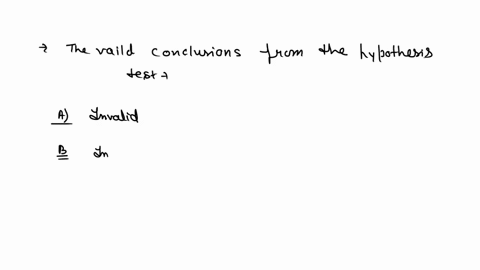 → The vaild conclusions from the hypothesis
test →
A) Invalid
B In